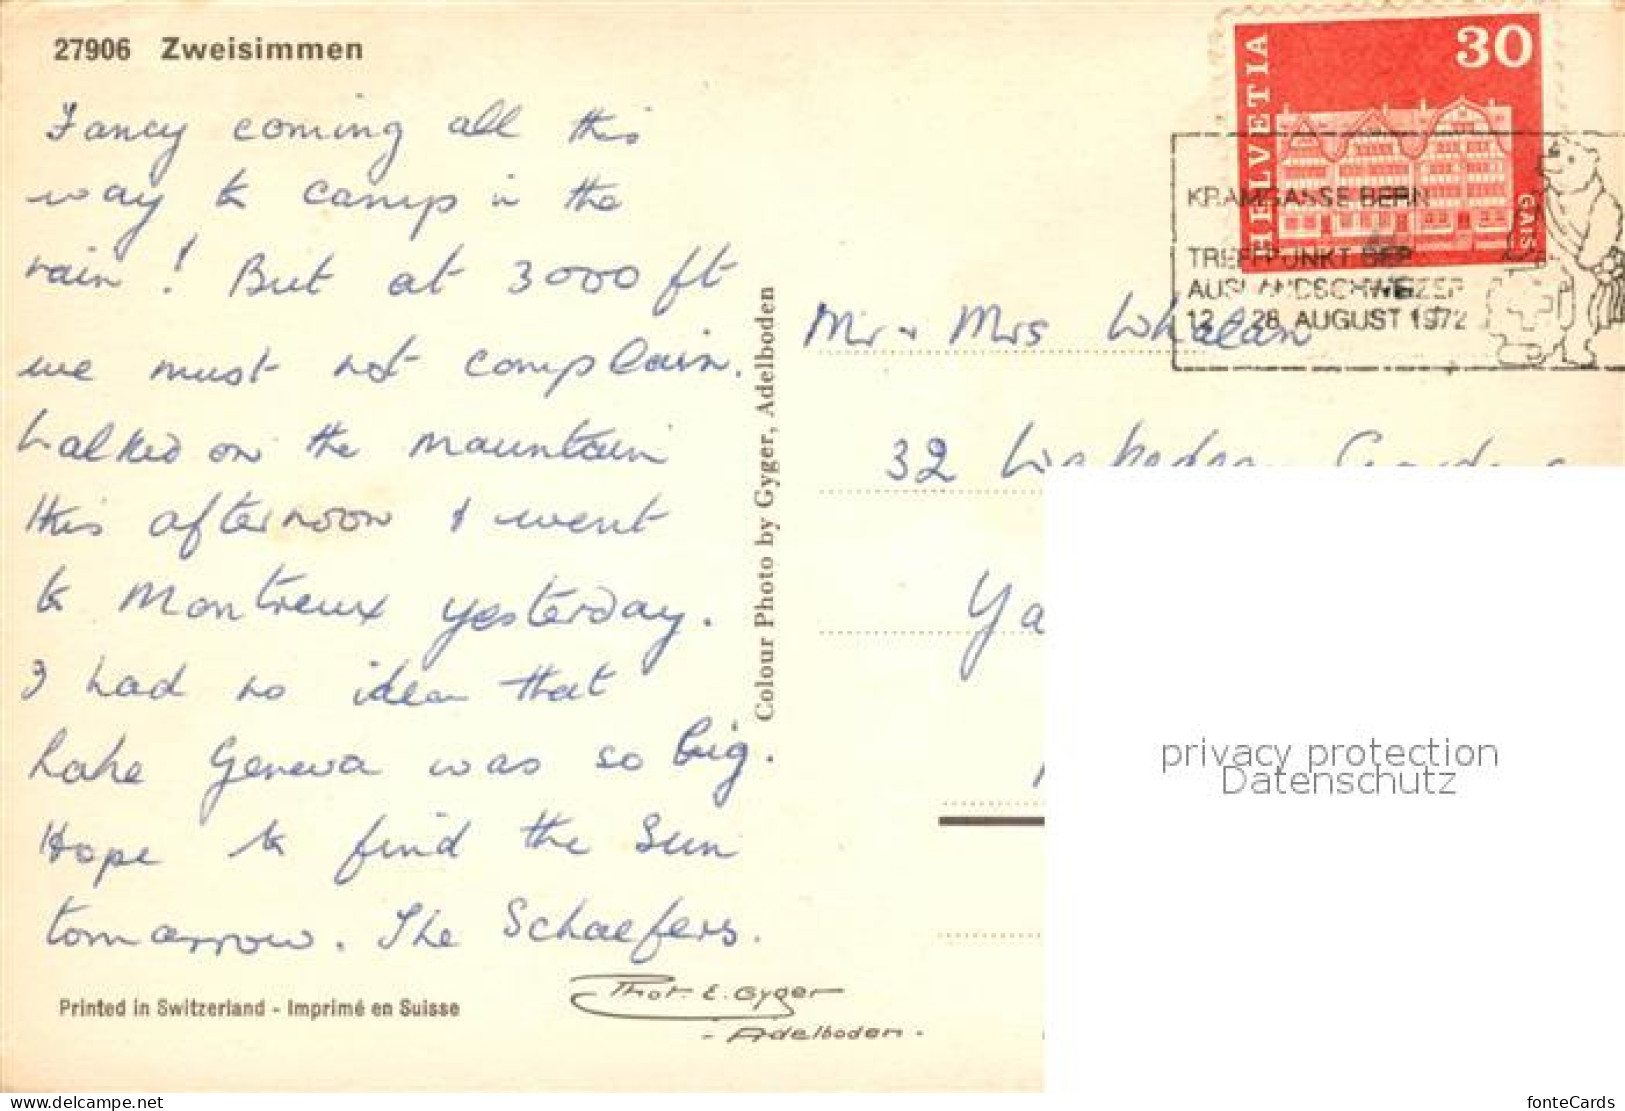 27906 Zweisimmen
Fancy coming all this
way to camp in the
rain! But at 3000 ft
we must not complain.
Walked on the mountain
this afternoon & went
to Montreux yesterday.
I had no idea that
Lake Geneva was so big.
Hope to find the Sun
tomorrow. The Schaefers.
Printed in Switzerland - Imprimé en Suisse
Phot. E. Gyger
- Adelboden -
Colour Photo by Gyger, Adelboden
HELVETIA
30
GAIS
KRAMGASSE BERN
TREFFPUNKT DER
AUSLANDSCHWEIZER
12. - 28. AUGUST 1972
Mr & Mrs Whelan
32
Ya
privacy protection
Datenschutz
www.delcampe.net
fonteCards